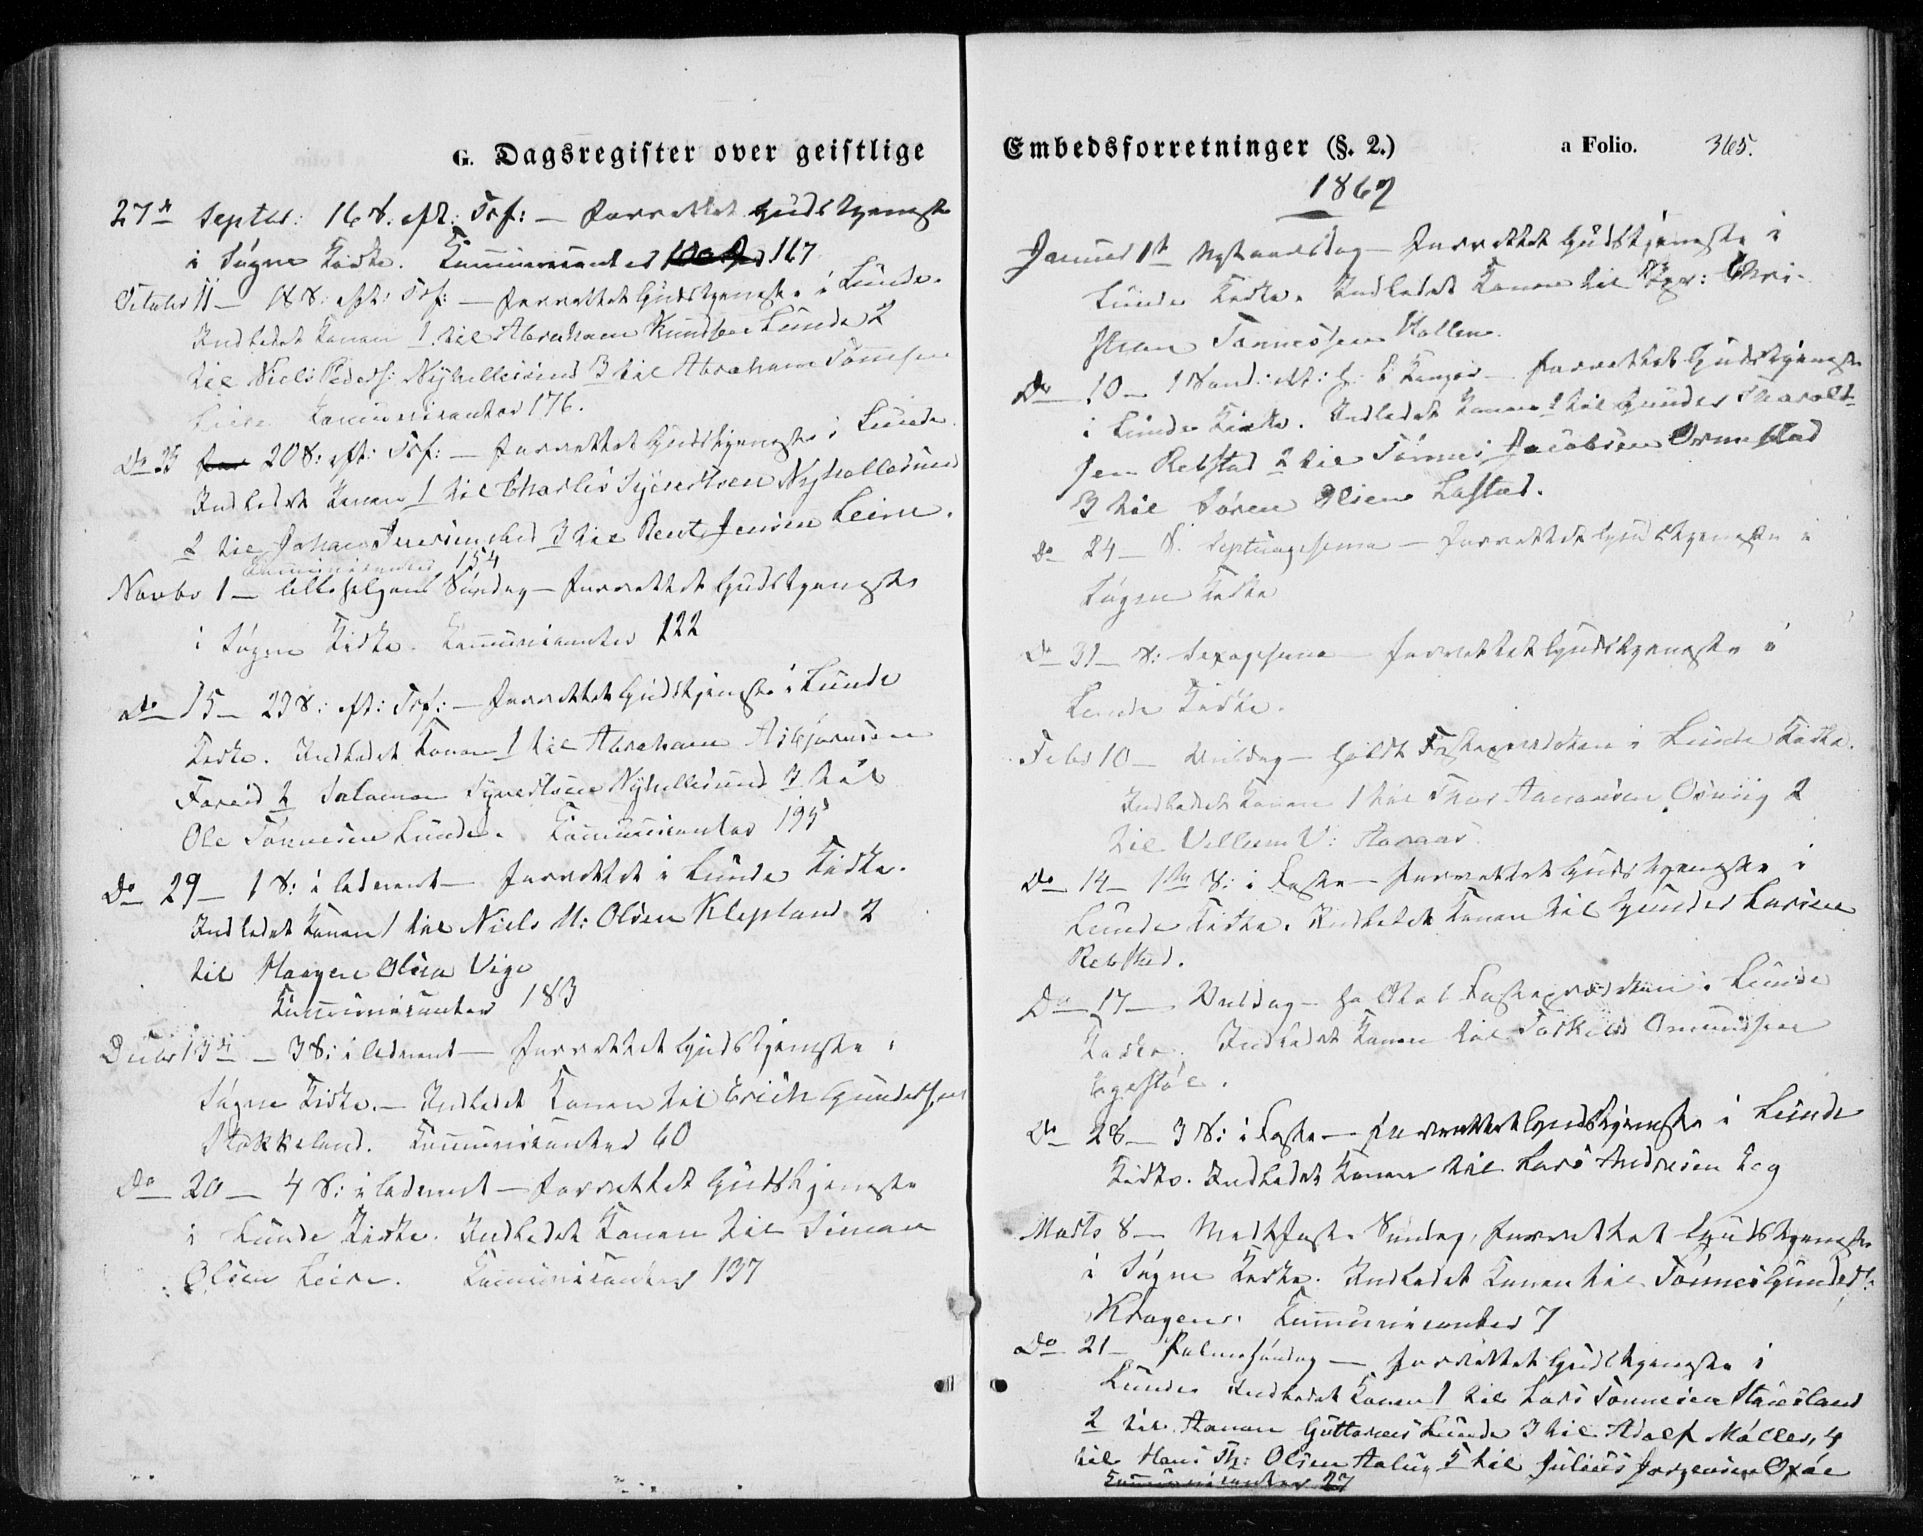 G. Dagsregister over geistlige
27de Septbr: 16 S. eft: Trf: — forrettet Gudstjeneste
i Søgne Kirke. Kommunicanter 117
October 11 — 18 S: eft: Trf: — forrettet Gudstjeneste i Lunde.
Indledet Konen 1 til Abraham Knudsen Lunde 2
til Niels Peders: Nyhellesund 3 til Abraham Tønnesen
Leire Kommunicanter 176.
Do 25 20 S: eft: Trf: — forrettet Gudstjeneste i Lunde.
Indledet Konen 1 til Charles Syvertsen Nyhellesund
2 til Johan 3 til Bent Jensen Leire.
Kommunicanter 154
Novbr 1 — Allehelgens Søndag — forrettet Gudstjeneste
i Søgne Kirke. Kommunicanter 122
Do 15 — 23 S: eft: Trf: — forrettet Gudstjeneste i Lunde
Kirke. Indledet Konen 1 til Abraham Asbjørnsen
2 Salomon Syvertsen Nyhellesund 3 til
Ole Tønnesen Lunde. Kommunicanter 195
Do 29 — 1 S: i Advent — forrettet i Lunde Kirke.
Indledet Konen 1 til Niels M: Olsen Klepland 2
til Haagen Olsen Vige
Kommunicanter 183
Decbr 13de — 3 S: i Advent — forrettet Gudstjeneste i
Søgne Kirke. — Indledet Konen til Erich Gundersen
Stokkeland. Kommunicanter 60
Do 20 — 4 S: i Advent — forrettet Gudstjeneste
i Lunde Kirke. Indledet Konen til Simon
Olsen Leire. Kommunicanter 137
Embedsforretninger (§. 2.) a Folio. 365.
1869
Januar 1ste Nytaarsdag — forrettet Gudstjeneste i
Lunde Kirke. Indledet Konen til Chri-
stian Tønnessen Hollen
Do 10 — 1 Sønd: eft: H. 3 Konger — forrettet Gudstjeneste
i Lunde Kirke. Indledet Konen 1 til Gunder Tharald-
sen Rebstad 2 til Tønnes Jacobsen Ormestad
3 til Søren Olsen Lastad.
Do 24 — S. Septuagesima — forrettet Gudstjeneste i
Søgne Kirke
Do 31 — S: Sexagesima — forrettet Gudstjeneste i
Lunde Kirke.
Febr 10 — Onsdag — holdt Fasteprædiken i Lunde Kirke.
Indledet Konen 1 til Thor Aanonsen 2
til Vellum V:
Do 14 — 1ste S: i Faste — forrettet Gudstjeneste i
Lunde Kirke. Indledet Konen til Gunder Larsen
Rebstad.
Do 17 — Onsdag — holdt Fasteprædiken i Lunde
Kirke. Indledet Konen til Torkild Omundsen
Do 28 — 3 S: i Faste — forrettet Gudstjeneste i Lunde
Kirke. Indledet Konen til Lars Andresen
Marts 8 — Midtfaste Søndag, forrettet Gudstjeneste
i Søgne Kirke. Indledet Konen til Tønnes Gunders:
Kragenes. Kommunicanter 7
Do 21 — Palmesøndag — forrettet Gudstjeneste i
Lunde Indledet Konen 1 til Lars Tønnesen Stauesland
2 til Aanon Guttormsen Lunde 3 til Adolf Møller, 4
til Hans Th: Olsen 5 til Julius Jørgensen
Kommunicanter 27